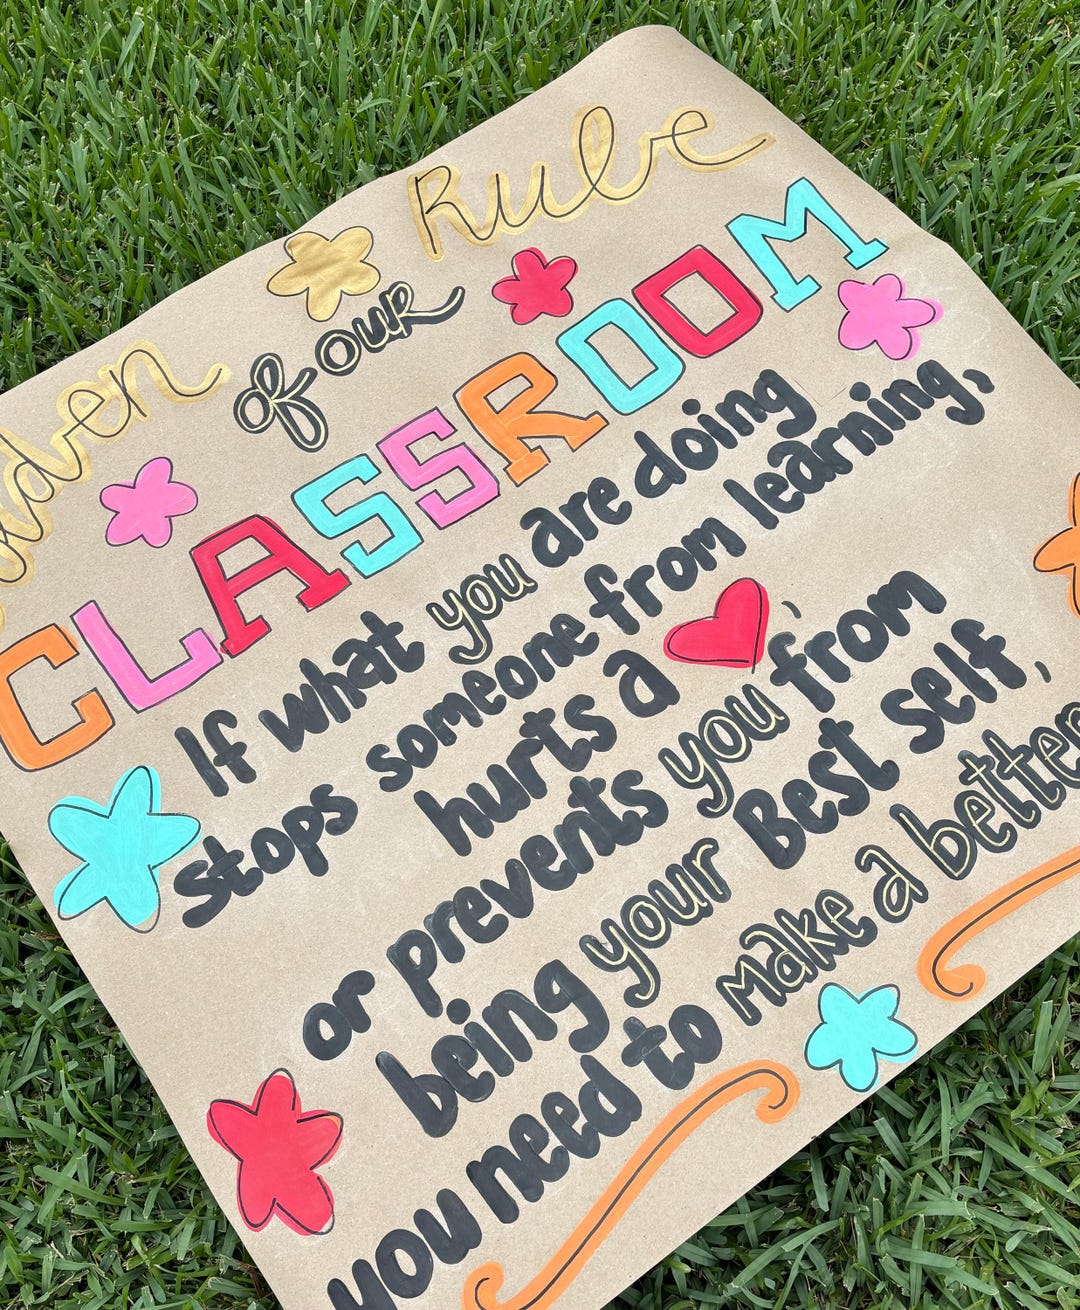 lden Rule
of our
CLASSROOM
If what you are doing
stops someone from learning,
hurts a ❤,
or prevents you from
being your Best self,
you need to make a better